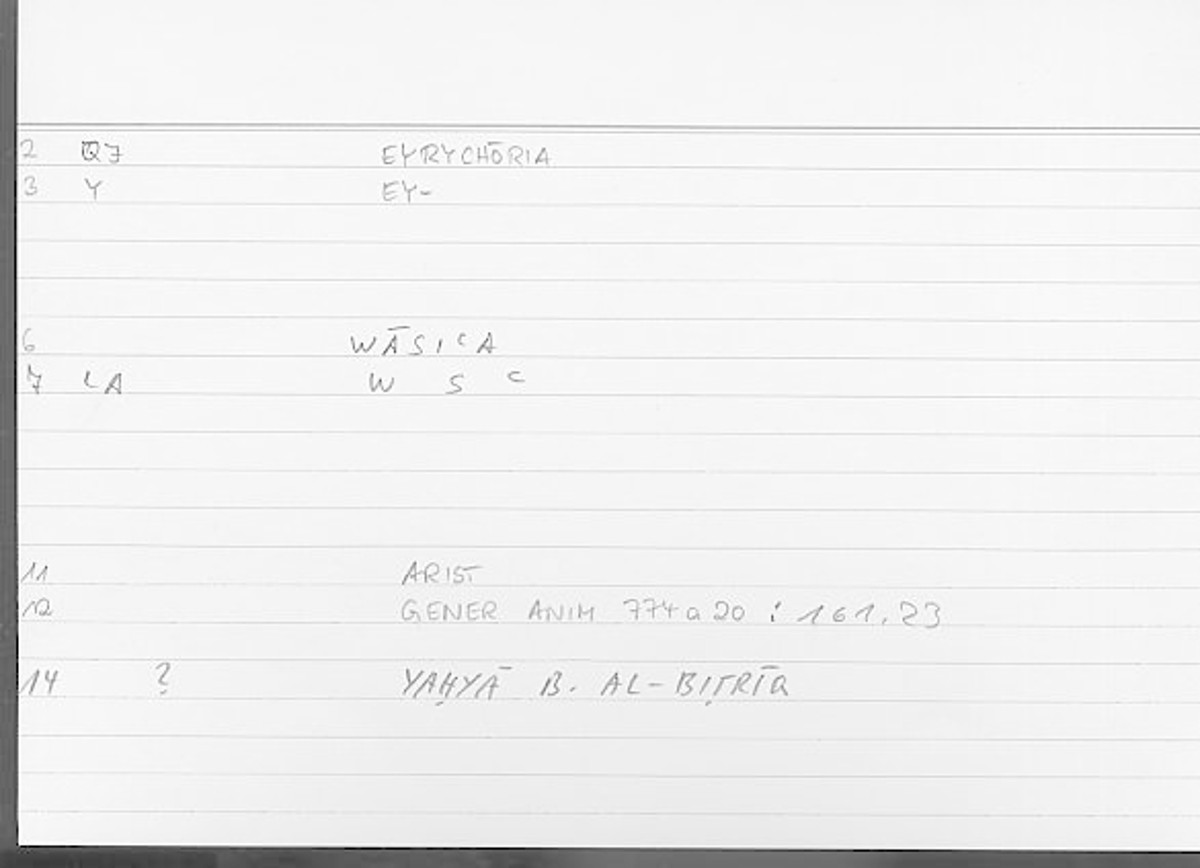 2 Q7 EYRYCHŌRIA
3 Y EY-
6 WĀSIʿA
7 ʿA W S ʿ
11 ARIST
12 GENER ANIM 774a20 : 161,23
14 ? YAḤYĀ B. AL-BIṬRĪQ